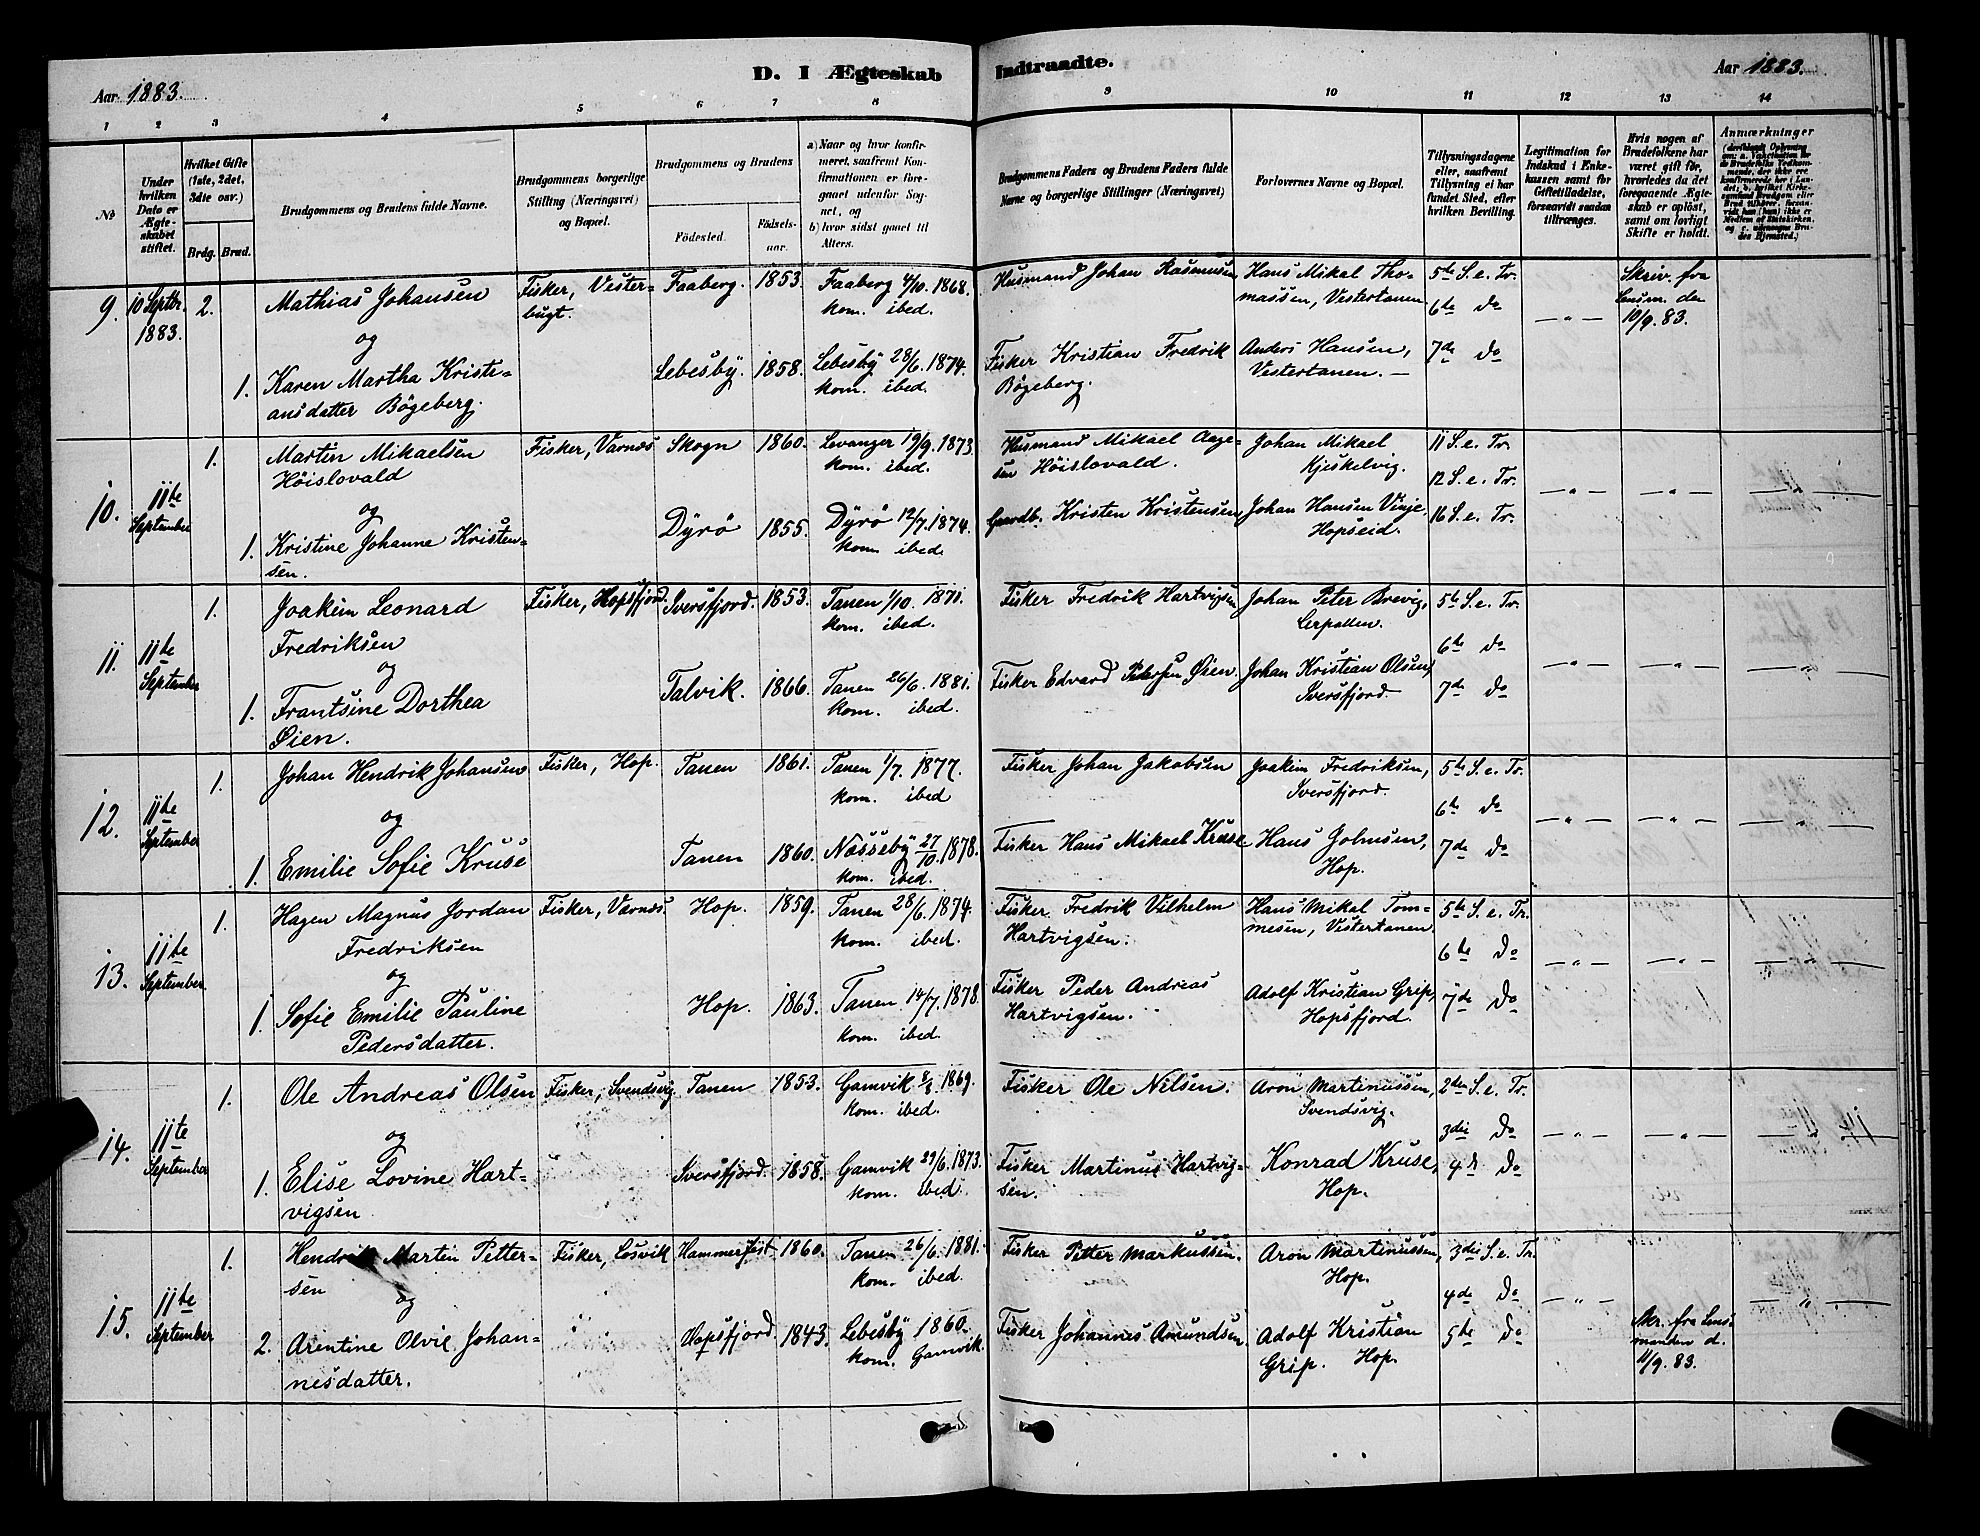 Aar 1883.
D. I Ægteskab
Indtraadte.
Aar 1883.
1 2 3 4 5 6 7 8 9 10 11 12 13 14
No
Under hvilken Dato er Ægteskabet stiftet.
Hvilket Gifte (1ste, 2det, 3die osv.)
Brdg. Brud.
Brudgommens og Brudens fulde Navne.
Brudgommens borgerlige Stilling (Næringsvei) og Bopæl.
Brudgommens og Brudens
Fødested.
Fødselsaar.
a) Naar og hvor konfirmeret, saafremt Konfirmationen er foregaaet udenfor Sognet, og
b) hvor sidst gaaet til Alters.
Brudgommens Faders og Brudens Faders fulde Navne og borgerlige Stillinger (Næringsvei)
Forlovernes Navne og Bopæl.
Tillysningsdagene eller, saafremt Tillysning ei har fundet Sted, efter hvilken Bevilling.
Legitimation for Indskud i Enkekassen samt for Giftetilladelse, forsaavidt saadan tiltrænges.
Hvis nogen af Brudefolkene har været gift før, hvorledes da det foregaaende Ægteskab er opløst, samt om lovligt Skifte er holdt.
Anmærkninger
9. 10 Septbr. 1883. 2.
Mathias Johansen
og
1. Karen Martha Kristiansdatter Bögeberg.
Fisker, Vesterbugt.
Faaberg. 1853. Faaberg 4/10. 1868. kom. ibed.
Lebesby. 1858. Lebesby 28/6. 1874. kom. ibed.
Husmand Johan Rasmussen
Fisker Kristian Fredrik Bögeberg.
Hans Mikal Thomassen, Vestertanen
Anders Hansen, Vestertanen. —
5te S. e. Tr.
6te do
7de do
— " —
Skriv. fra Lensm. den 10/9. 83.
10. 11te September 1.
Martin Mikaelsen Höislovald
og
1. Kristine Johanne Kristensen.
Fisker, Værnes
Skogn 1860. Levanger 19/9. 1873. kom. ibed.
Dyrö 1855. Dyrö 12/7. 1874. kom. ibed.
Husmand Mikael Aagesen Höislovald.
Gaardb. Kristen Kristensen
Johan Mikael Kjeskelvig.
Johan Hansen Vinje, Hopseid.
11 S. e. Tr.
12 S. e. Tr.
16 S. e. Tr.
— " — — " — — " —
11. 11te September 1.
Joakim Leonard Fredriksen
og
1. Frantsine Dorthea Øien.
Fisker, Hopsfjord.
Iversfjord. 1853. Tanen 1/10. 1871. kom. ibed.
Talvik. 1866. Tanen 26/6. 1881. kom. ibed.
Fisker Fredrik Hartvigsen
Fisker Edvard Petersen Øien.
Johan Peter Brevig, Lerpollen.
Johan Kristian Olsen, Iversfjord.
5te S. e. Tr.
6te do
7de do
— " — — " — — " —
12. 11te September 1.
Johan Hendrik Johansen
og
1. Emilie Sofie Kruse
Fisker, Hop.
Tanen 1861. Tanen 1/7. 1877. kom. ibed
Tanen 1860. Næsseby 27/10. 1878. kom. ibed.
Fisker Johan Jakobsen
Fisker Hans Mikael Kruse
Joakim Fredriksen, Iversfjord.
Hans Johnsen, Hop.
5te S. e. Tr.
6te do
7de do
— " — — " — — " —
13. 11te September 1.
Hagen Magnus Jordan Fredriksen
og
1. Sofie Emilie Pauline Pedersdatter.
Fisker, Værnes.
Hop. 1859. Tanen 28/6. 1874. kom. ibed.
Hop. 1863. Tanen 14/7. 1878. kom. ibed.
Fisker Fredrik Vilhelm Hartvigsen.
Fisker Peder Andreas Hartvigsen.
Hans Mikal Tommesen, Vestertanen.
Adolf Kristian Grip, Hopsfjord.
5te S. e. Tr.
6te do
7de do
— " — — " — — " —
14. 11te September 1.
Ole Andreas Olsen
og
1. Elise Lovine Hartvigsen
Fisker, Svendsvig.
Tanen 1853. Gamvik 8/8. 1869. kom. ibed.
Iversfjord. 1858. Gamvik 29/6. 1873. kom. ibed.
Fisker Ole Nilsen.
Fisker Martinus Hartvigsen.
Aron Martinussen, Svendsvig.
Konrad Kruse, Hop.
2den S. e. Tr.
3die do
4de do
— " — — " — — " —
15. 11te September 1.
Hendrik Martin Pettersen
og
2. Arentine Olvie Johannesdatter.
Fisker, Losvik
Hammerfest. 1860. Tanen 26/6. 1881. kom. ibed.
Hopsfjord. 1843. Lebesby 1860. kom. Gamvik.
Fisker Petter Markussen.
Fisker Johannes Amundsen
Aron Martinussen, Hop.
Adolf Kristian Grip. Hop.
3die S. e. Tr.
4de do
5te do
— " — — " —
Skr. fra Lensmanden d. 11/9. 83.